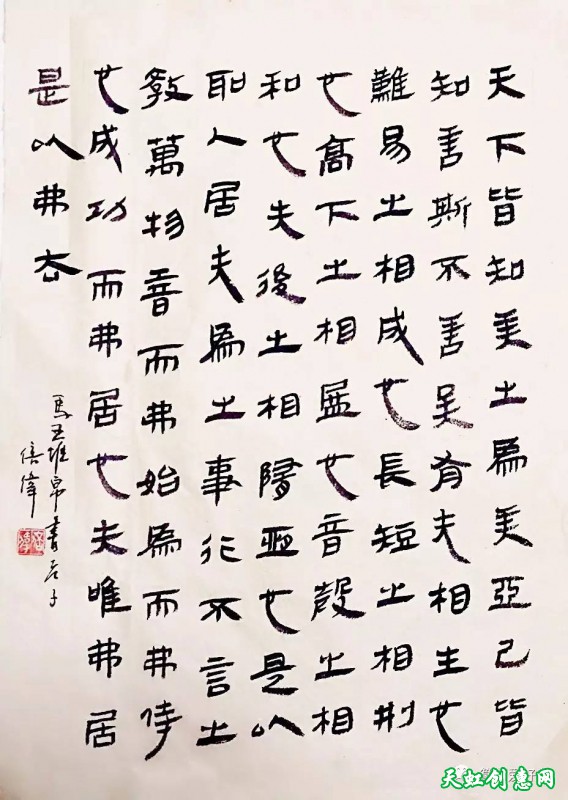 天下皆知美之爲美亞已皆
知善斯不善矣有无相生也
難易之相成也長短之相刑
也高下之相盈也音聲之相
和也先後之相隋恆也是以
聖人居无爲之事行不言之
教萬物昔而弗始爲而弗侍
也成功而弗居也夫唯弗居
是以弗去
馬王堆帛書老子
天虹创惠网